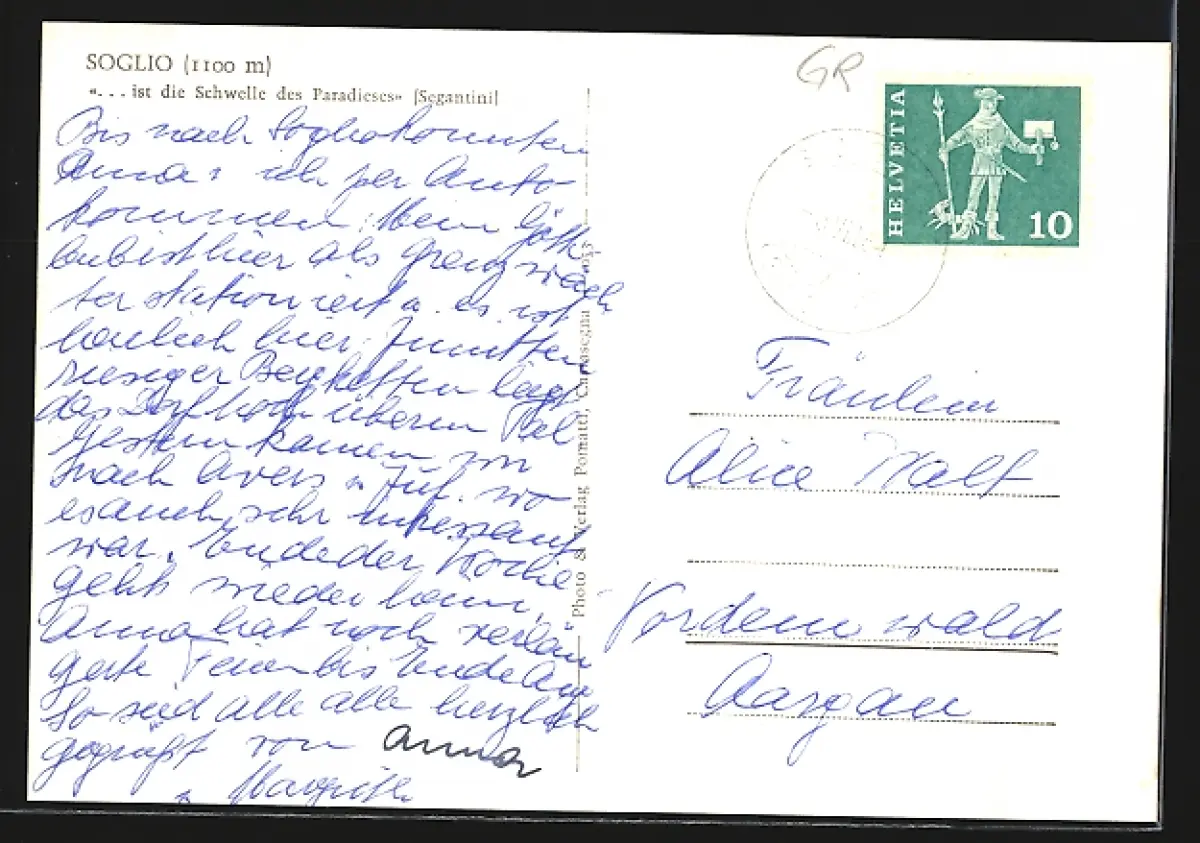 SOGLIO (1100 m)
«... ist die Schwelle des Paradieses» [Segantini]
Bis nach Soglio konnten
Anna & ich per Auto
kommen. Mein Götti
bub ist hier als Grenzwäch
ter stationiert u. es ist
herrlich hier. Inmitten
riesiger Bergketten liegt
das Dorf hoch überm Tal
Gestern kamen wir
nach Avers u Juf. wo
es auch sehr interessant
war. Ende der Woche
gehts wieder heim,
Anna hat noch verlän
gerte Ferien bis Ende
So seid alle alle herzlich
gegrüßt von Anna
u Margrith
Photo & Verlag Pomatti, Castasegna
GR
HELVETIA
10
Fräulein
Alice Wält
Vordemwald
Aargau